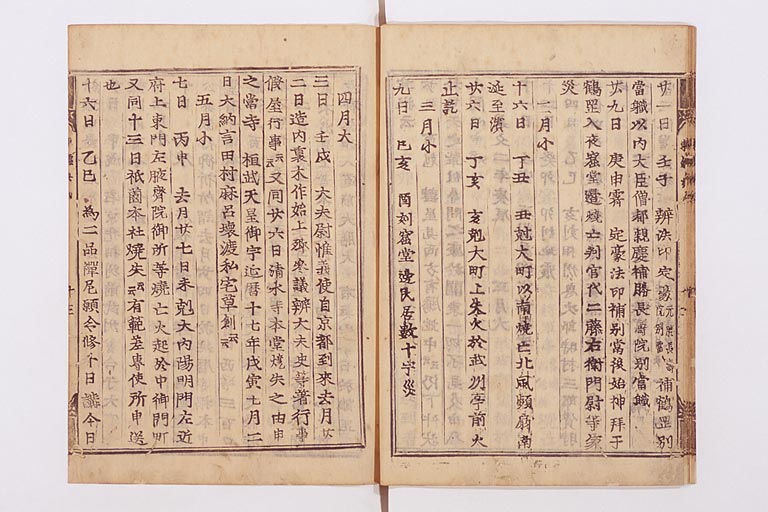 廿一日 壬子 辨法印定豪 補鶴罡別
當軄以内大臣僧都親慶補勝長壽院別當軄
廿九日 庚申霽 定豪法印補別當後始神拜于
鶴罡入夜窟堂邊燒亡判官代二藤右衛門尉等家
災
二月小
十六日 丁丑 丑尅大町以南燒亡北風頻扇南
延至濱
廿六日 丁亥 亥尅大町上失火於武州亭前火
止訖
三月小
九日 己亥 酉刻窟堂邊民居數十宇災
四月大
三日 壬戌 大夫尉惟義使自京都到來去月廿
二日造内裏木作始上卿參議辨大夫史等著行事
假屋行事云云又同廿六日清水寺本堂燒失之由申
之當寺 桓武天皇御宇延暦十七年戊寅七月二
日大納言田村麻呂壊渡私宅草創云云
五月小
七日 丙申 去月廿七日未尅大内陽明門左近
府上東門左腋齋院御所等燒亡火起於中御門町
又同十三日祇薗本社燒失云云有範差專使所申送
也
十六日 乙巳 為二品禪尼願令修千日講今日
十三